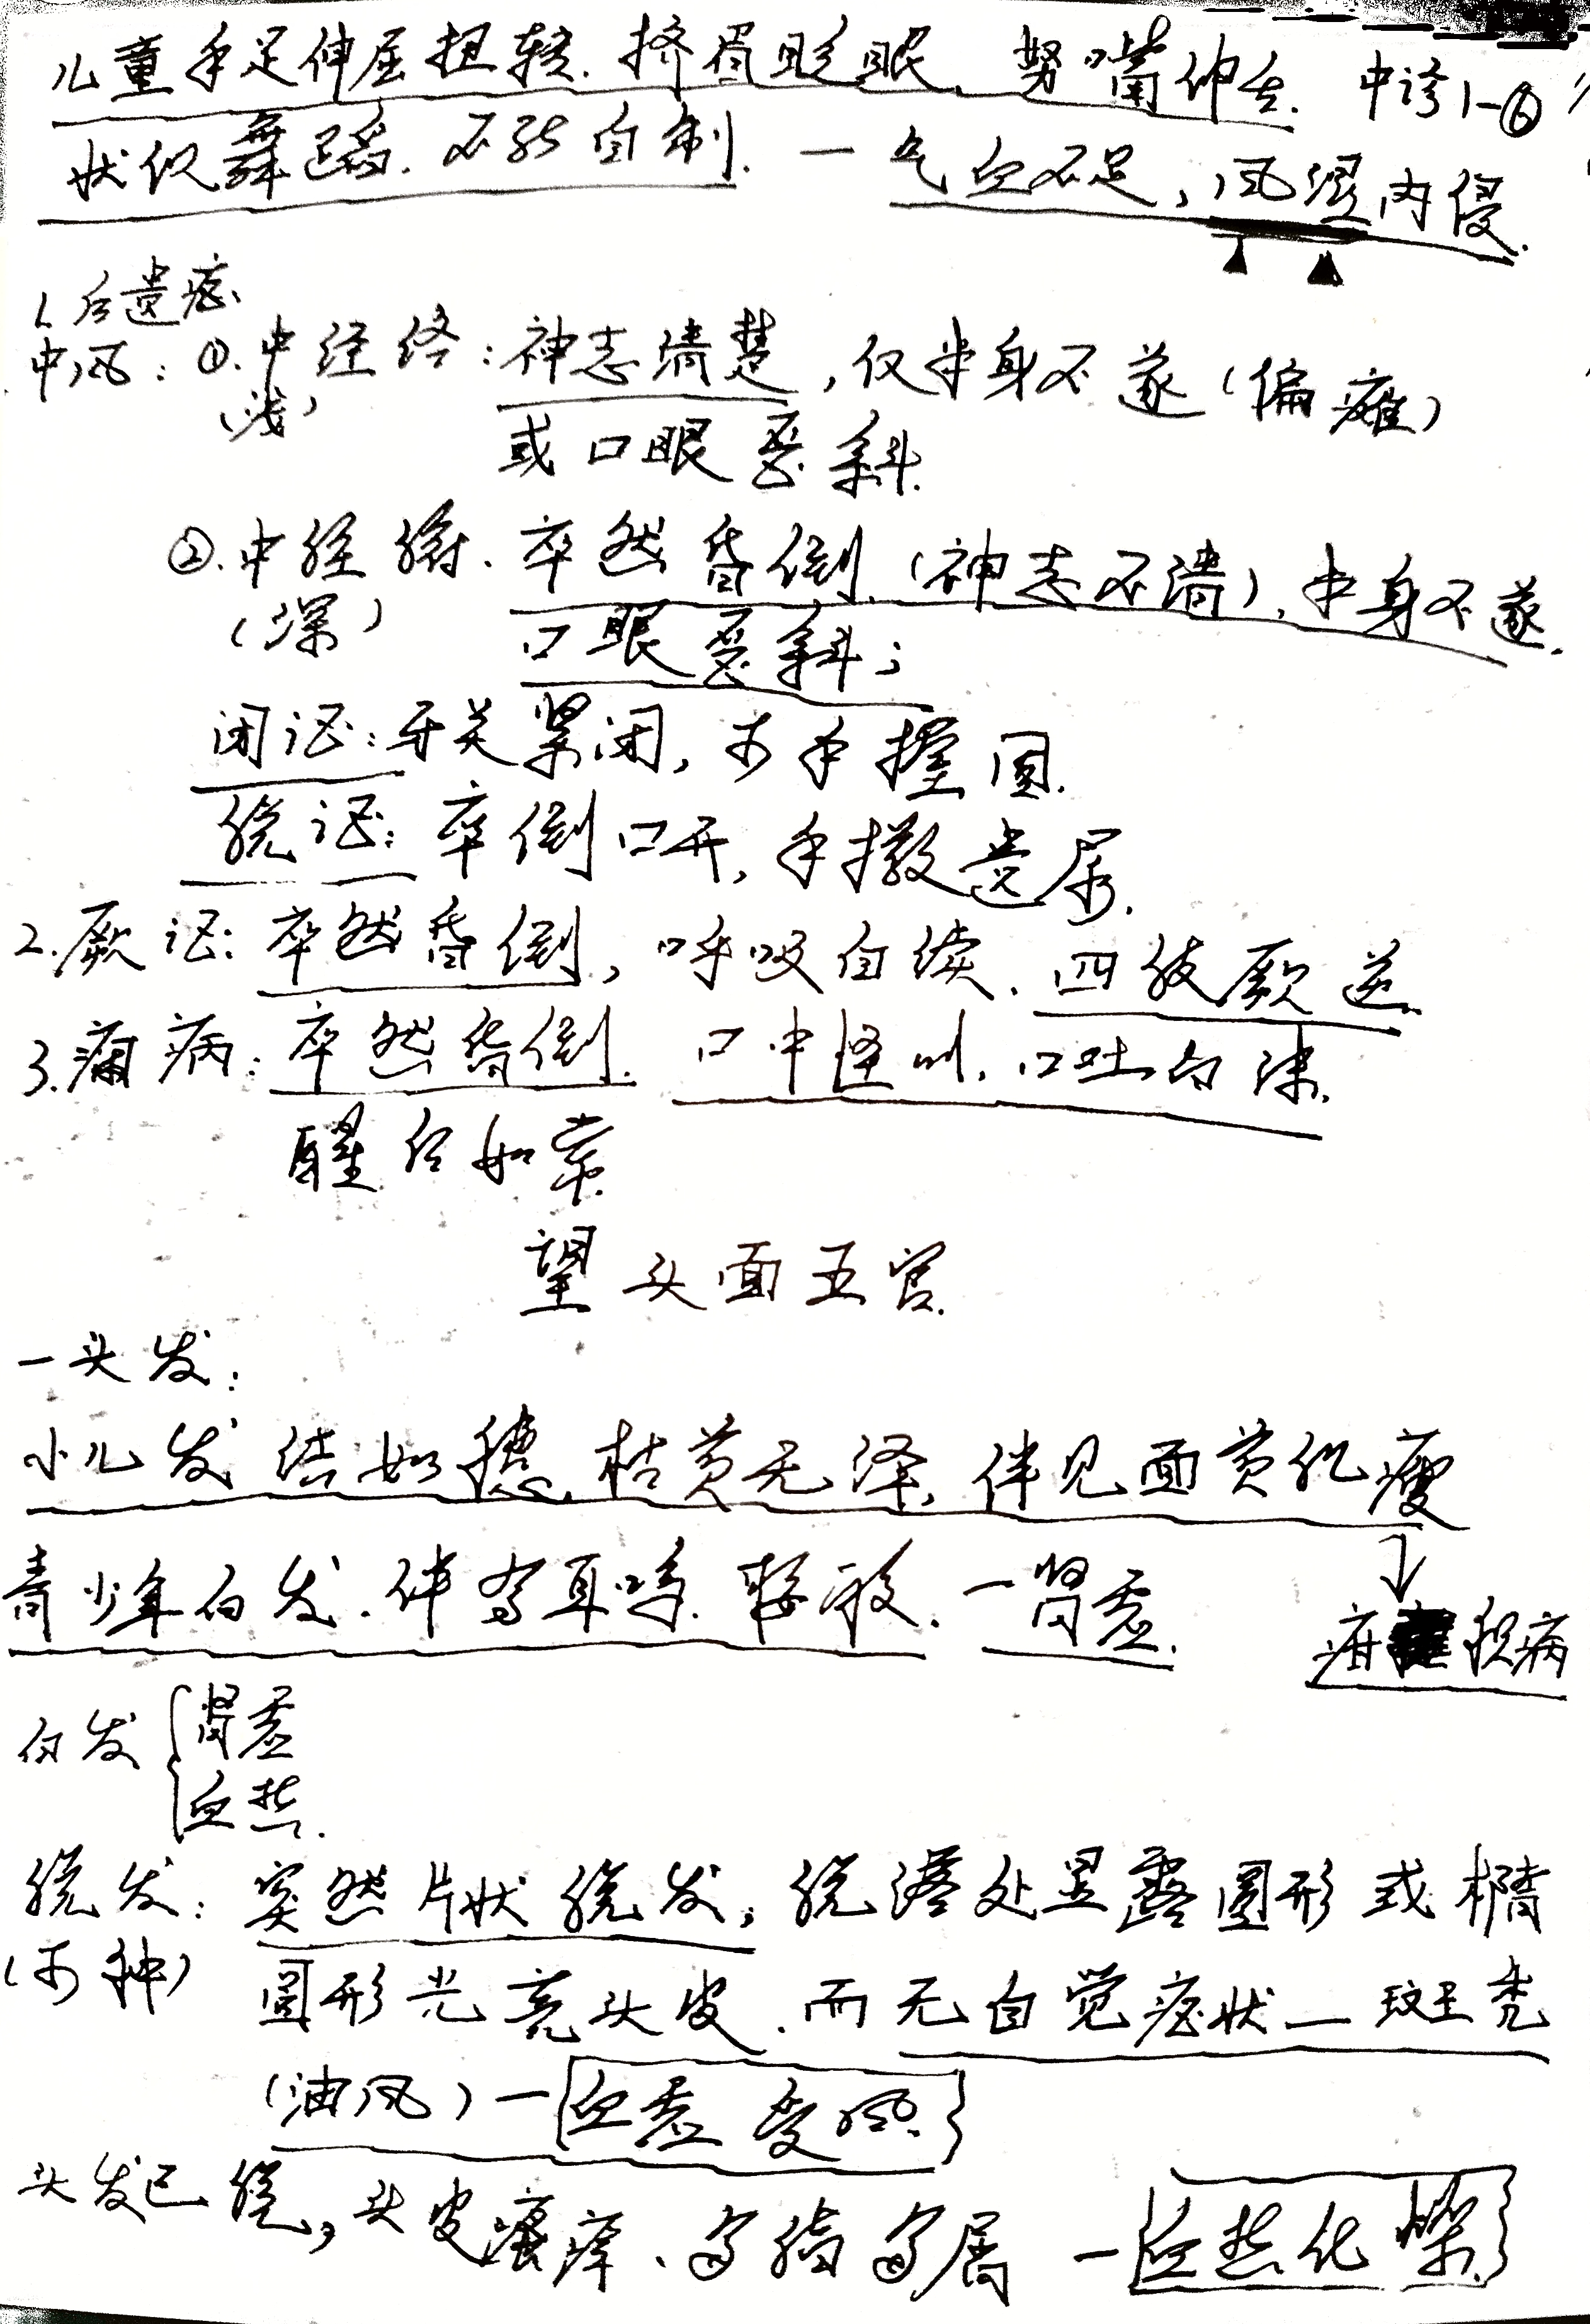 儿童手足伸屈扭转.挤眉眨眼、努嘴伸舌. 中诊1-⑥
状似舞蹈.不能自制. — 气血不足,风湿内侵.
1.后遗症
中风: ①.中经络:神志清楚,仅半身不遂(偏瘫)
(浅)
或口眼歪斜.
②.中经腑.卒然昏倒.(神志不清),半身不遂.
(深) 口眼歪斜;
闭证:牙关紧闭,两手握固.
脱证:卒倒口开,手撒遗尿.
2.厥证:卒然昏倒,呼吸自续.四肢厥逆.
3.痫病:卒然昏倒. 口中怪叫.口吐白沫.
醒后如常.
望头面五官.
一头发:
小儿发结如穗,枯黄无泽,伴见面黄肌瘦
↓
青少年白发.伴有耳鸣.腰酸. — 肾虚. 疳积病
白发 { 肾虚
血热.
脱发: 突然片状脱发,脱落处显露圆形或椭
(两种) 圆形光亮头皮.而无自觉症状 — 斑秃
(油风) — {血虚受风.}
头发已脱,头皮瘙痒、多脂多屑 — {血热化燥}